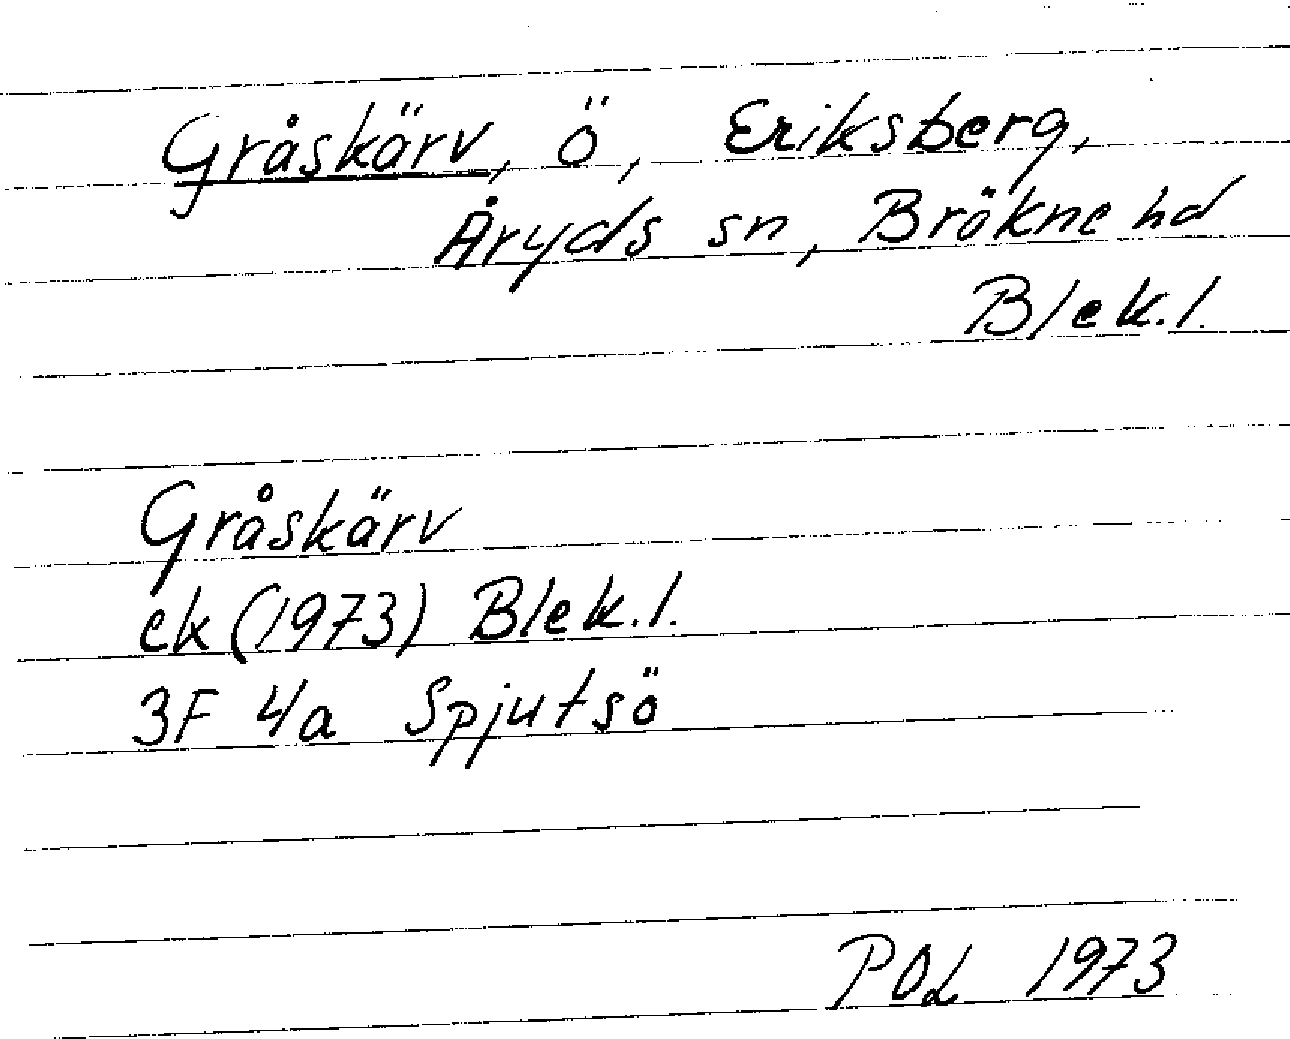 Gråskärv, ö, Eriksberg,
Åryds sn, Bräkne hd
Blek.l.
Gråskärv
ek (1973) Blek.l.
3F 4a Spjutsö
POL 1973